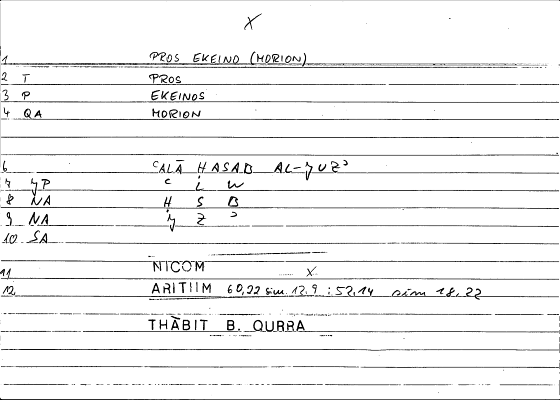 X
1 PROS EKEINO (MORION)
2 T PROS
3 P EKEINOS
4 QA MORION
6 ʿALĀ ḤASAB AL-ǧUZʾ
7 ǧP ʿ L W
8 NA Ḥ S B
9 NA ǧ Z ʾ
10 SA
11 NICOM X
12 ARITIIM 60,22 sim. 12.9 : 52,14 sim 18.22
THĀBIT B. QURRA